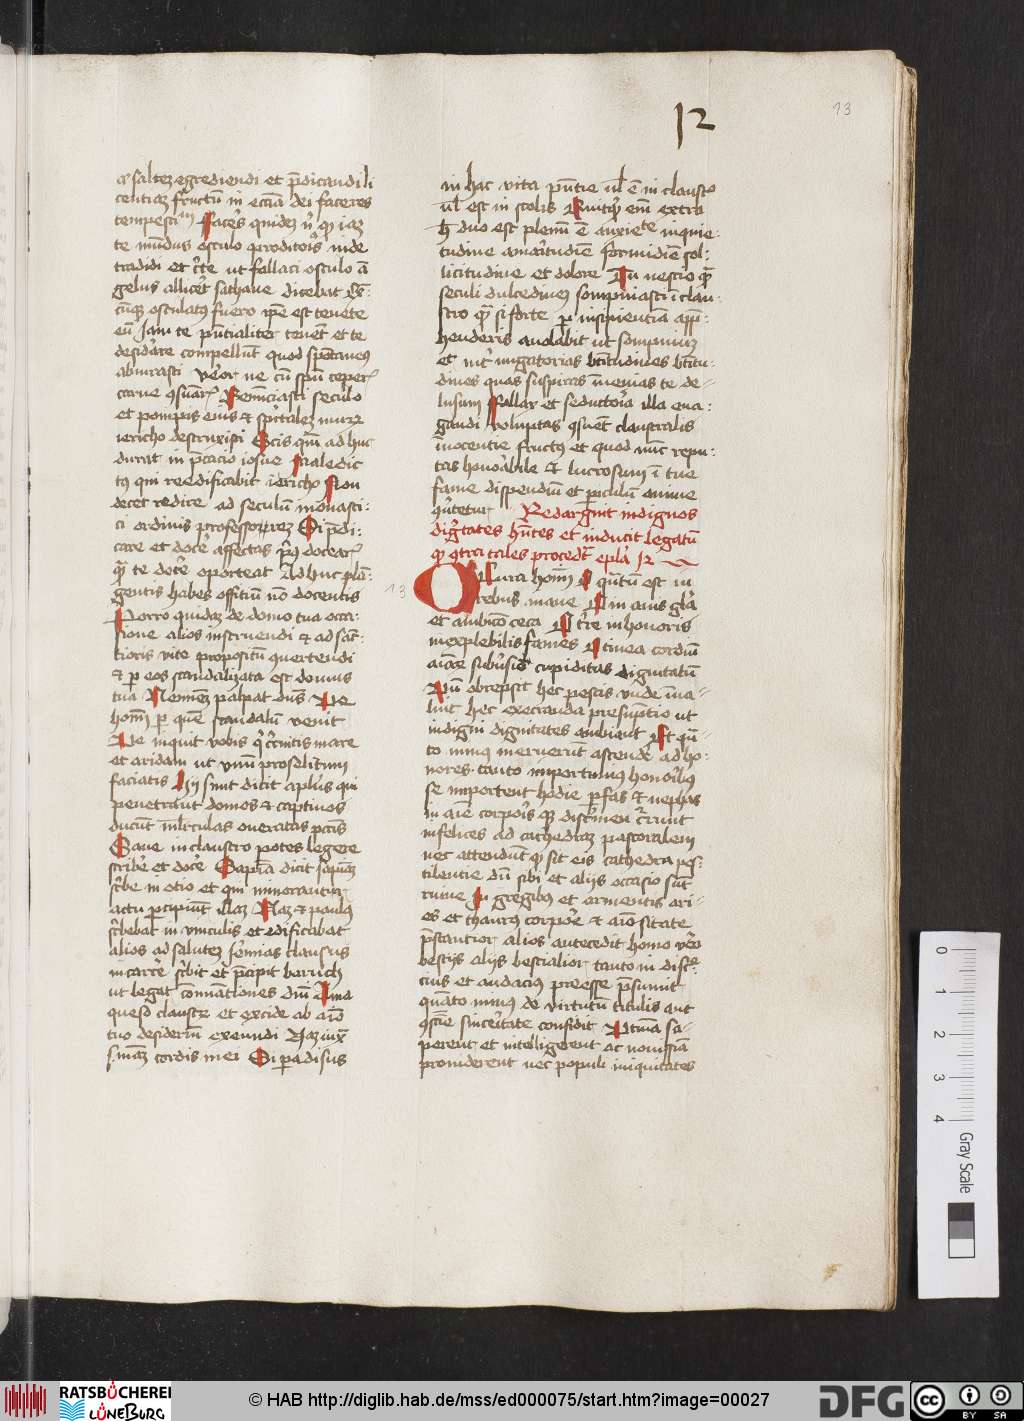 12
13
saltez egrediendi et p̄dicandi li
centiaz fructu᷑ in ecc̄ia dei faceres
tempesti
faces quidez
te mūdus osculo proditoris inde
tradidi et c̄te ut fallaci osculo ā
gelus allicet sathane dicebat
cūq; osculatus fuero ip̄e est tenete
eū Jam te p̄ntialiter tenet et te
desidare compellūt quod spōtaneus
abiurasti veor ne cū spū ceper
carne Renūciasti seculo
et pompis eius et spi᷑talez mur
iericho destruxisti Scis qm̄ ad huc
durat in p̄cacio iosue Maledic
tus qui reedificabit iericho Non
decet redire ad seculū monasti
ci ordinis professorez Si p̄di
care et doce affectas docear
te doce oporteat Ad huc plā
gentis habes officiū nō docentis
Porro quidaz de domo tua occa
sione alios instruendi et ad sāc
tioris vite propositū querendi
et p eos scandalizata est domus
tua Neminez palpat dn̄s Ve
homī p quē scandalū venit
Ve inquit vobis q circuitis mare
et aridam ut vnū proselitum
faciatis Hij sunt dicit aplus qui
penetrant domos et captiuos
ducūt ml̄rculas oneratas pctīs
Sane in claustro potes legere
scribe et doce Sapīa dicit sapiāz
sc̄be in otio et qui minorantur
actu percipiūt illaz Naz et paulus
sc̄bebat in vinculis et edificabat
alios ad salutez Jeremias clausus
in carce sc̄bit et p̄cipit baruch
ut legat comīationes dn̄i Ama
queso claustr et excide ab aīo
tuo desideriū exeundi Naz iux
s̄niaz cordis mei Si paradisus
in hac vita p̄ntie ul̄ ē in claustro
ul̄ est in scolis Quitq eni᷑ extra
h duo est plenū ē anxiete inquie
tudine amaritudiē formidiē sol
licitudine et dolore Tu nescio
seculi dulcedinez sompniasti ī clau
stro si forte p insipientiā app
henderis auolabit ut sompnium
et int nugatorias btitudines btitu
dines quas suspicas inuenias te de
lusum Fallax et seductoria illa eua
gandi voluptas claustralis
īnocentie fructus et quod nūc repu
tas honoabile et lucrosum ī tue
fame dispendiū et periculū anime
Redarguit indignos
dignitates hn̄tes et inducit legatū
q cōtra tales procedt epl̄a 12
13
O Cura homī O qn̄tum est in
rebus inane O in anis gl̄a
et ambitō ceca O tr̄e in honoris
inexplebilis fames O tinea cordiū
aīarz subūsio cupiditas dignitatū
Vn̄ obrepsit hec pestis vnde īua
luit hec execranda presūptio ut
indigni dignitates ambiant Et qn̄
to minus meruerūt ascende ad ho
nores tanto importunius honoribus
se importent hodie p fas et nephas
in aīe corporis q; discimen currunt
infelices ad cathedraz pastoralem
nec attendūt q sit eis cathedra pes
tilentie dū sibi et alijs occasio sūt
ruine In gregibus et armentis ari
es et thaurus corpore et aīositate
p̄stantior alios antecedit homo vero
bestijs alijs bestialior tanto indisc
cius et audacius preesse p̄sumit
quāto minus de virtutū titulis aut
sinceritate confidit Vtinā sa
perent et intelligerent ac nouissīa
prouiderent nec populi iniquitates
0
1
2
3
4
Gray Scale
RATSBÜCHEREI
LÜNEBURG
© HAB http://diglib.hab.de/mss/ed000075/start.htm?image=00027
DFG
cc
BY SA